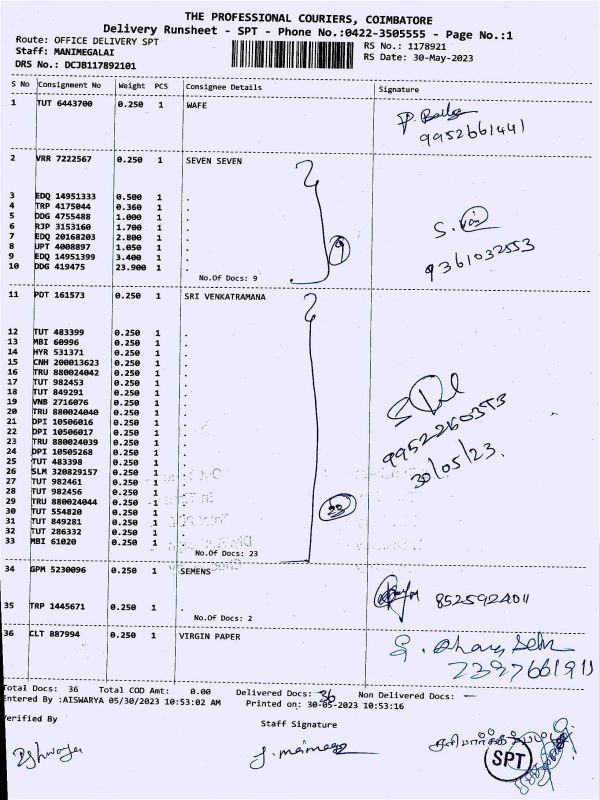 THE PROFESSIONAL COURIERS, COIMBATORE
Delivery Runsheet - SPT - Phone No.:0422-3505555 - Page No.:1
Route: OFFICE DELIVERY SPT
RS No.: 1178921
Staff: MANIMEGALAI
RS Date: 30-May-2023
DRS No.: DCJB117892101
S No Consignment No Weight PCS Consignee Details Signature
1 TUT 6443700 0.250 1 WAFE
9952661441
2 VRR 7222567 0.250 1 SEVEN SEVEN
3 EDQ 14951333 0.500 1 .
4 TRP 4175044 0.360 1 .
5 DDG 4755488 1.000 1 .
6 RJP 3153160 1.700 1 .
7 EDQ 20168203 2.800 1 .
8 UPT 4008897 1.050 1 .
9 EDQ 14951399 3.400 1 .
10 DDG 419475 23.900 1 .
9
9361032553
No.Of Docs: 9
11 PDT 161573 0.250 1 SRI VENKATRAMANA
12 TUT 483399 0.250 1 .
13 MBI 60996 0.250 1 .
14 HYR 531371 0.250 1 .
15 CNH 200013623 0.250 1 .
16 TRU 880024042 0.250 1 .
17 TUT 982453 0.250 1 .
18 TUT 849291 0.250 1 .
19 VNB 2716076 0.250 1 .
20 TRU 880024040 0.250 1 .
21 DPI 10506016 0.250 1 .
22 DPI 10506017 0.250 1 .
23 TRU 880024039 0.250 1 .
24 DPI 10505268 0.250 1 .
25 TUT 483398 0.250 1 .
26 SLM 320829157 0.250 1 .
27 TUT 982461 0.250 1 .
28 TUT 982456 0.250 1 .
29 TRU 880024044 0.250 1 .
30 TUT 554820 0.250 1 .
31 TUT 849281 0.250 1 .
32 TUT 286332 0.250 1 .
33 MBI 61020 0.250 1 .
23
9952260353
30/05/23.
No.Of Docs: 23
34 GPM 5230096 0.250 1 SEMENS
8525924011
35 TRP 1445671 0.250 1 .
No.Of Docs: 2
36 CLT 887994 0.250 1 VIRGIN PAPER
Total Docs: 36 Total COD Amt: 0.00 Delivered Docs: 36 Non Delivered Docs: —
Entered By :AISWARYA 05/30/2023 10:53:02 AM Printed on: 30-05-2023 10:53:16
Verified By
Staff Signature
SPT